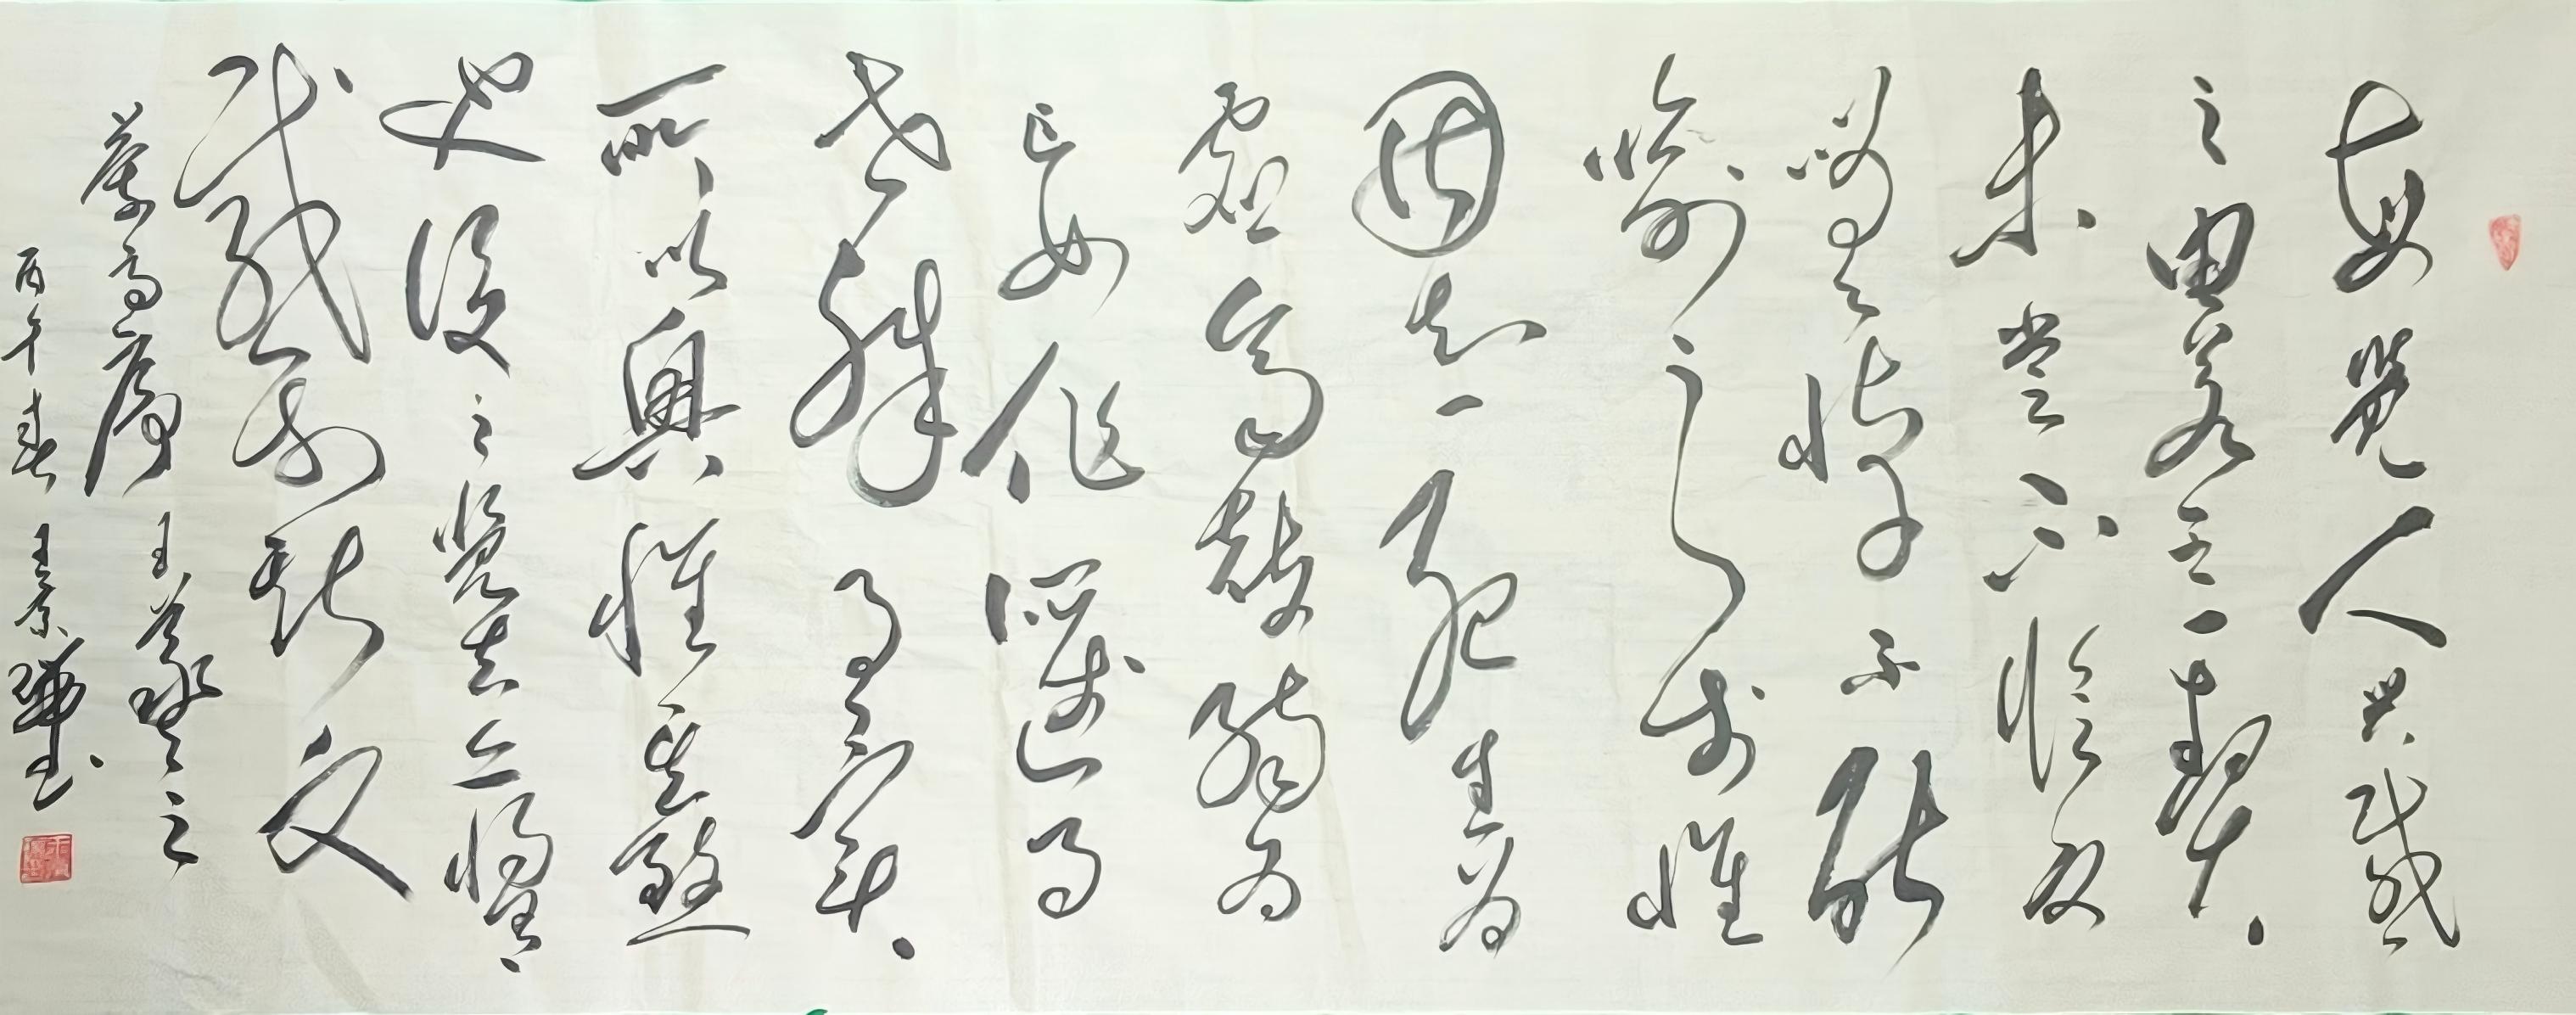 每覽人興感
之由若合一契
未嘗不臨文
嗟悼不能
喻之於懷
固知一死生為
虛齊彭殤為
妄作
世殊事異
所以興懷其致一
也後之覽者亦將有
感於斯文
蘭亭序 王羲之
丙午春 王景書